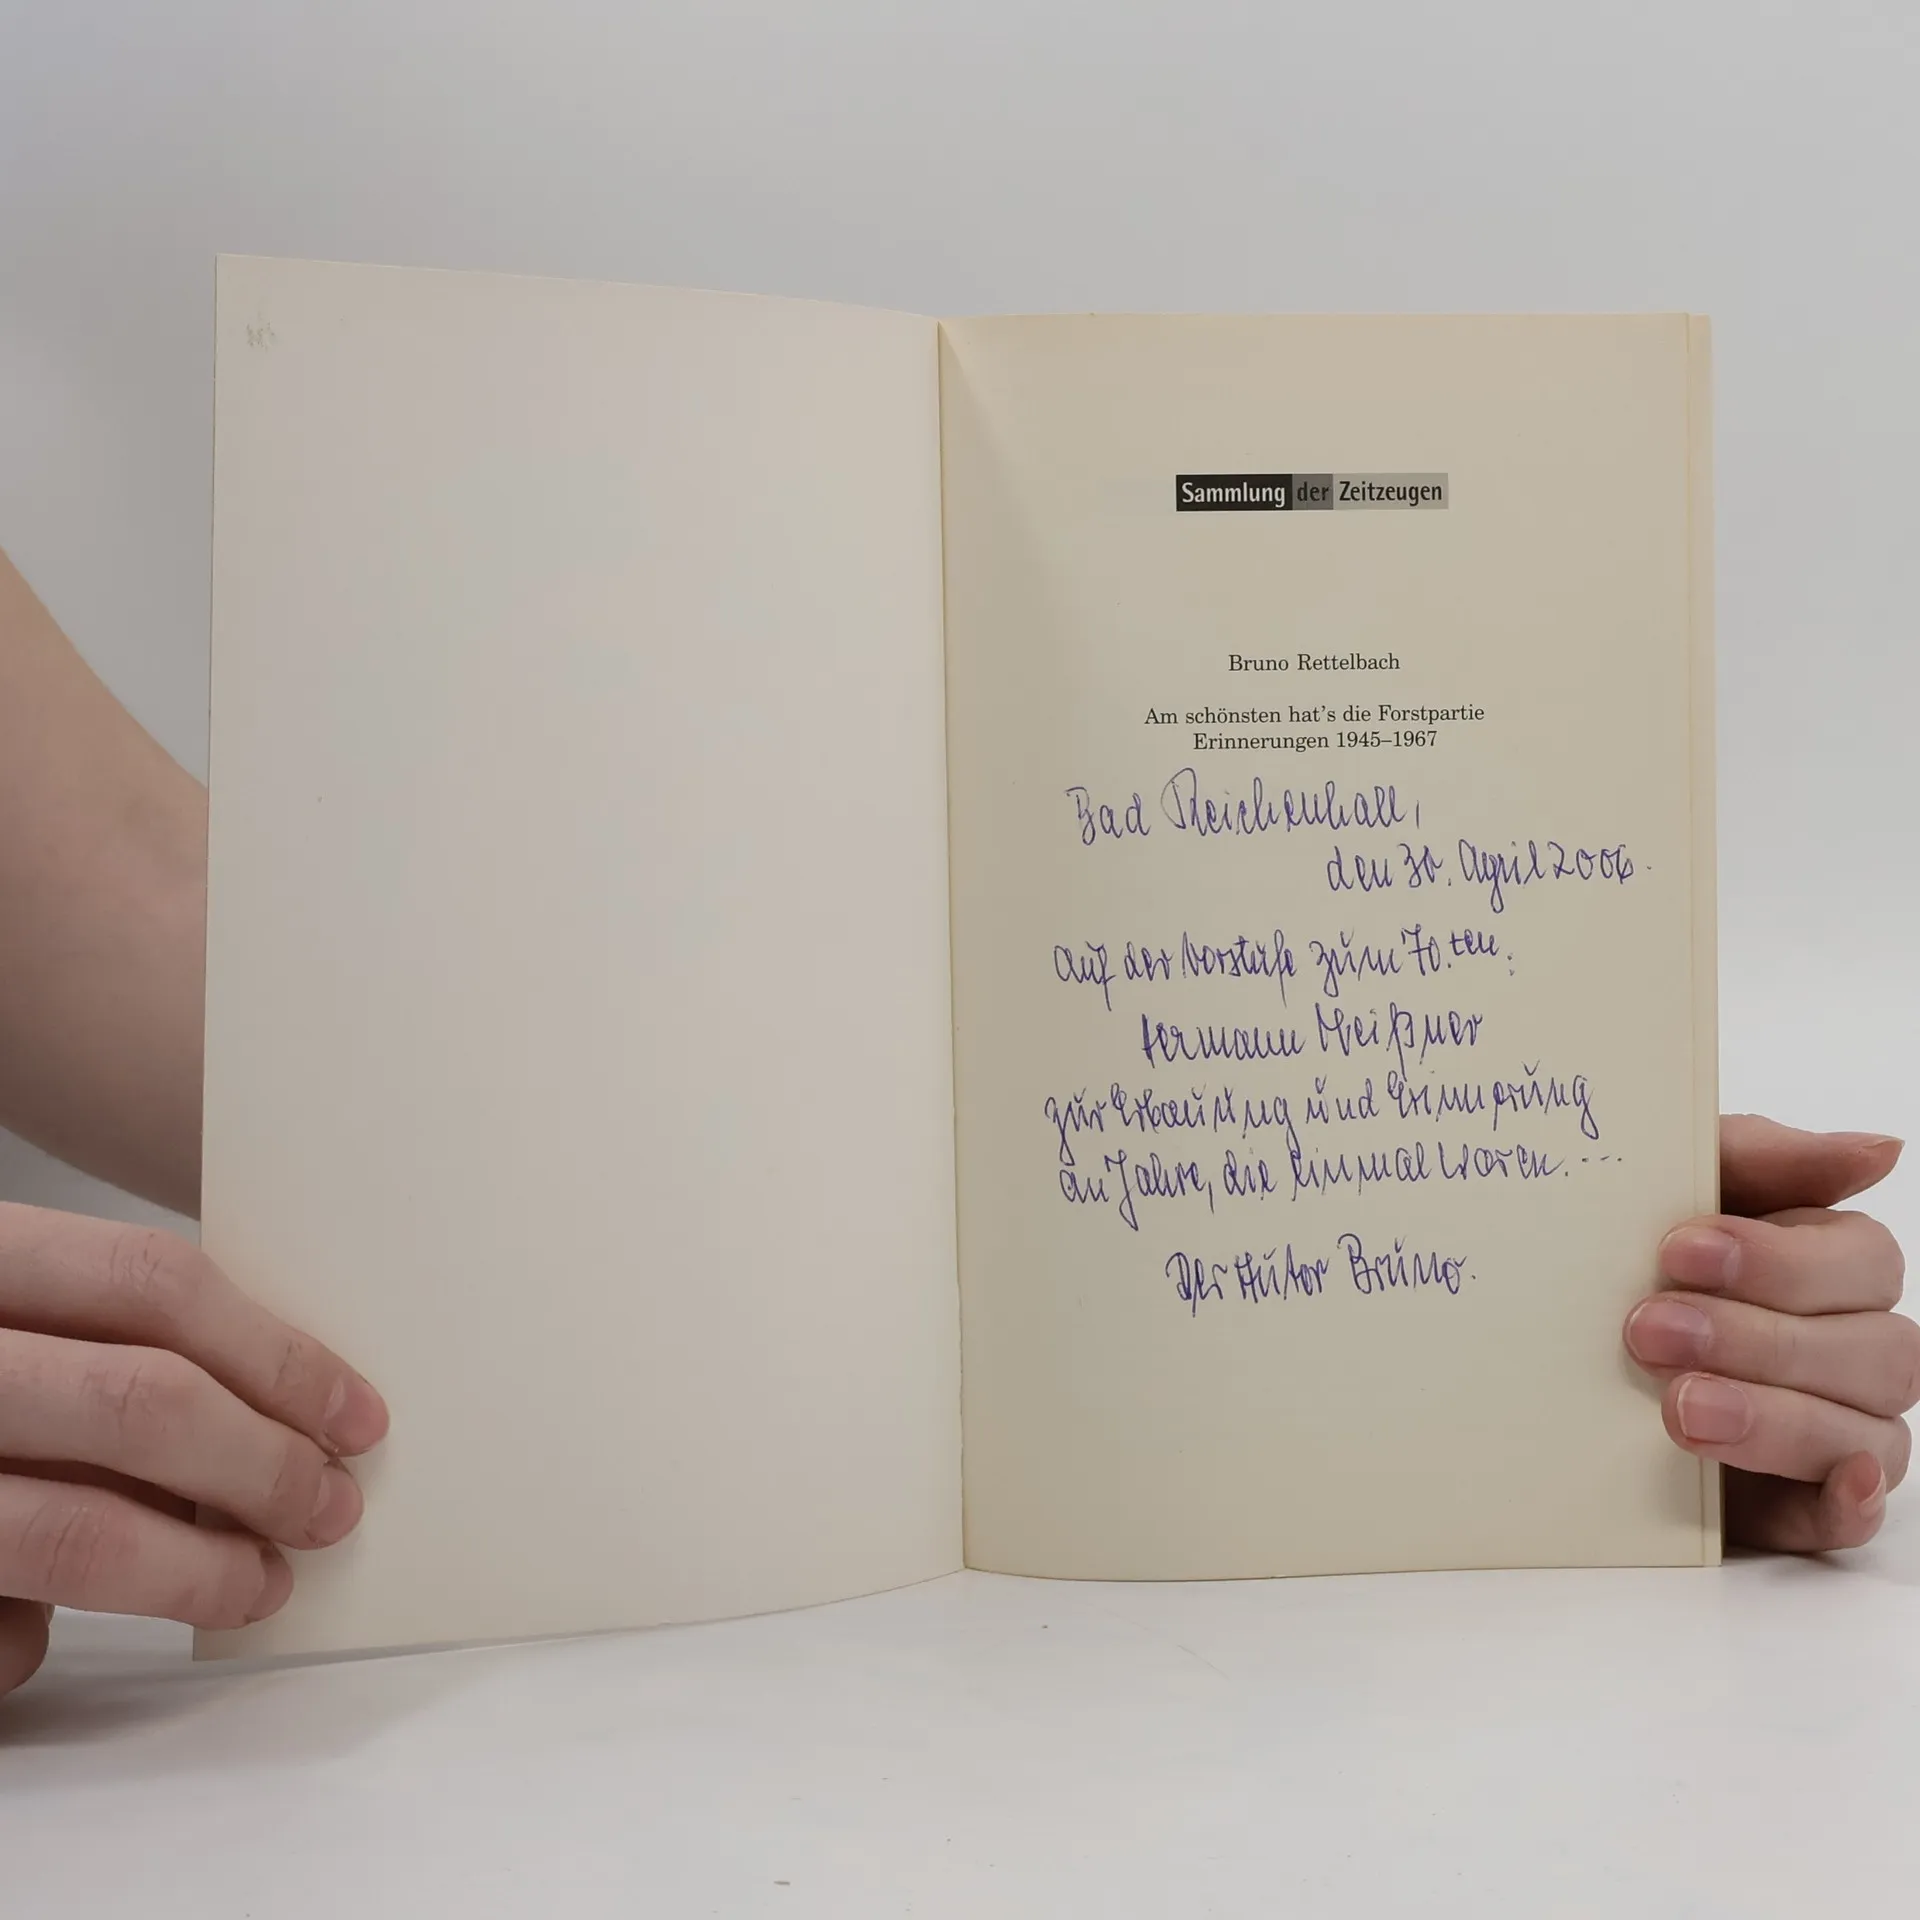 Sammlung der Zeitzeugen
Bruno Rettelbach
Am schönsten hat's die Forstpartie
Erinnerungen 1945–1967
Bad Reichenhall,
den 30. April 2006.
Auf der Vorstufe zum 70.ten:
Hermann Meißner
zur Erbauung und Erinnerung
an Jahre, die einmal waren. ...
Der Autor Bruno.